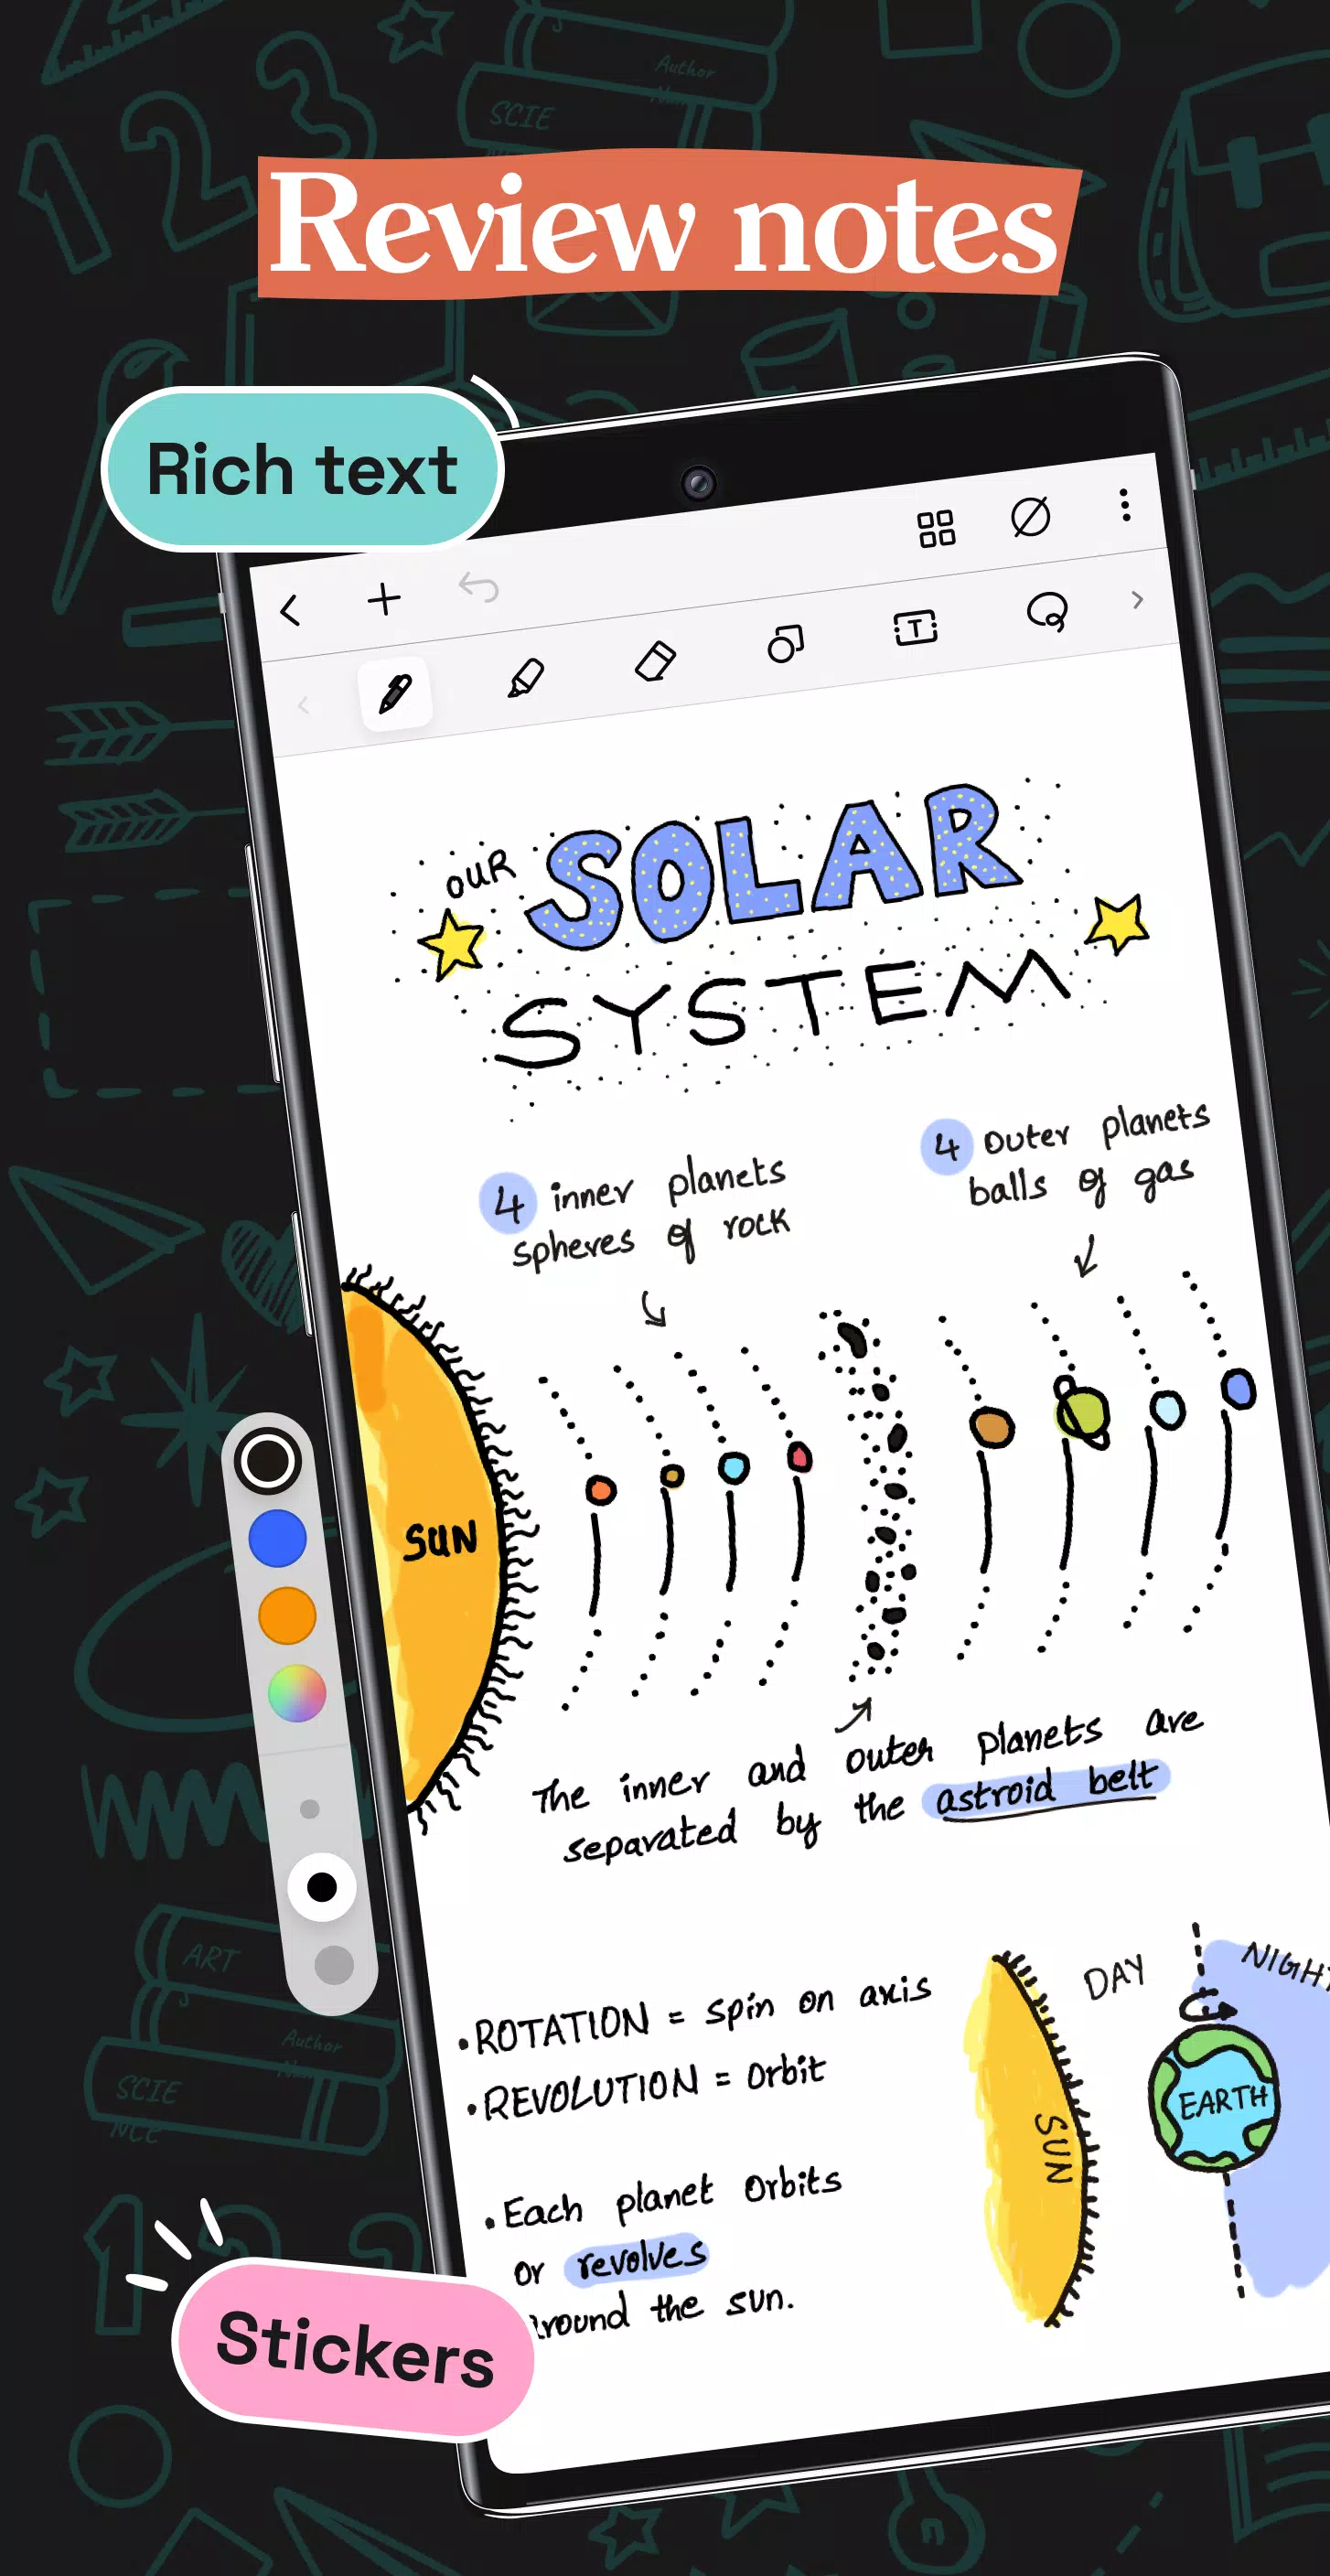 1 2 3
SCIE
Author
Review notes
Rich text
OUR
SOLAR
SYSTEM
4 inner planets
spheres of rock
4 outer planets
balls of gas
SUN
The inner and outer planets are
separated by the astroid belt
• ROTATION = spin on axis
• REVOLUTION = orbit
• Each planet orbits
or revolves
around the sun.
DAY
NIGHT
SUN
EARTH
ART
Author
SCIE
NCE
1 2 3
Stickers